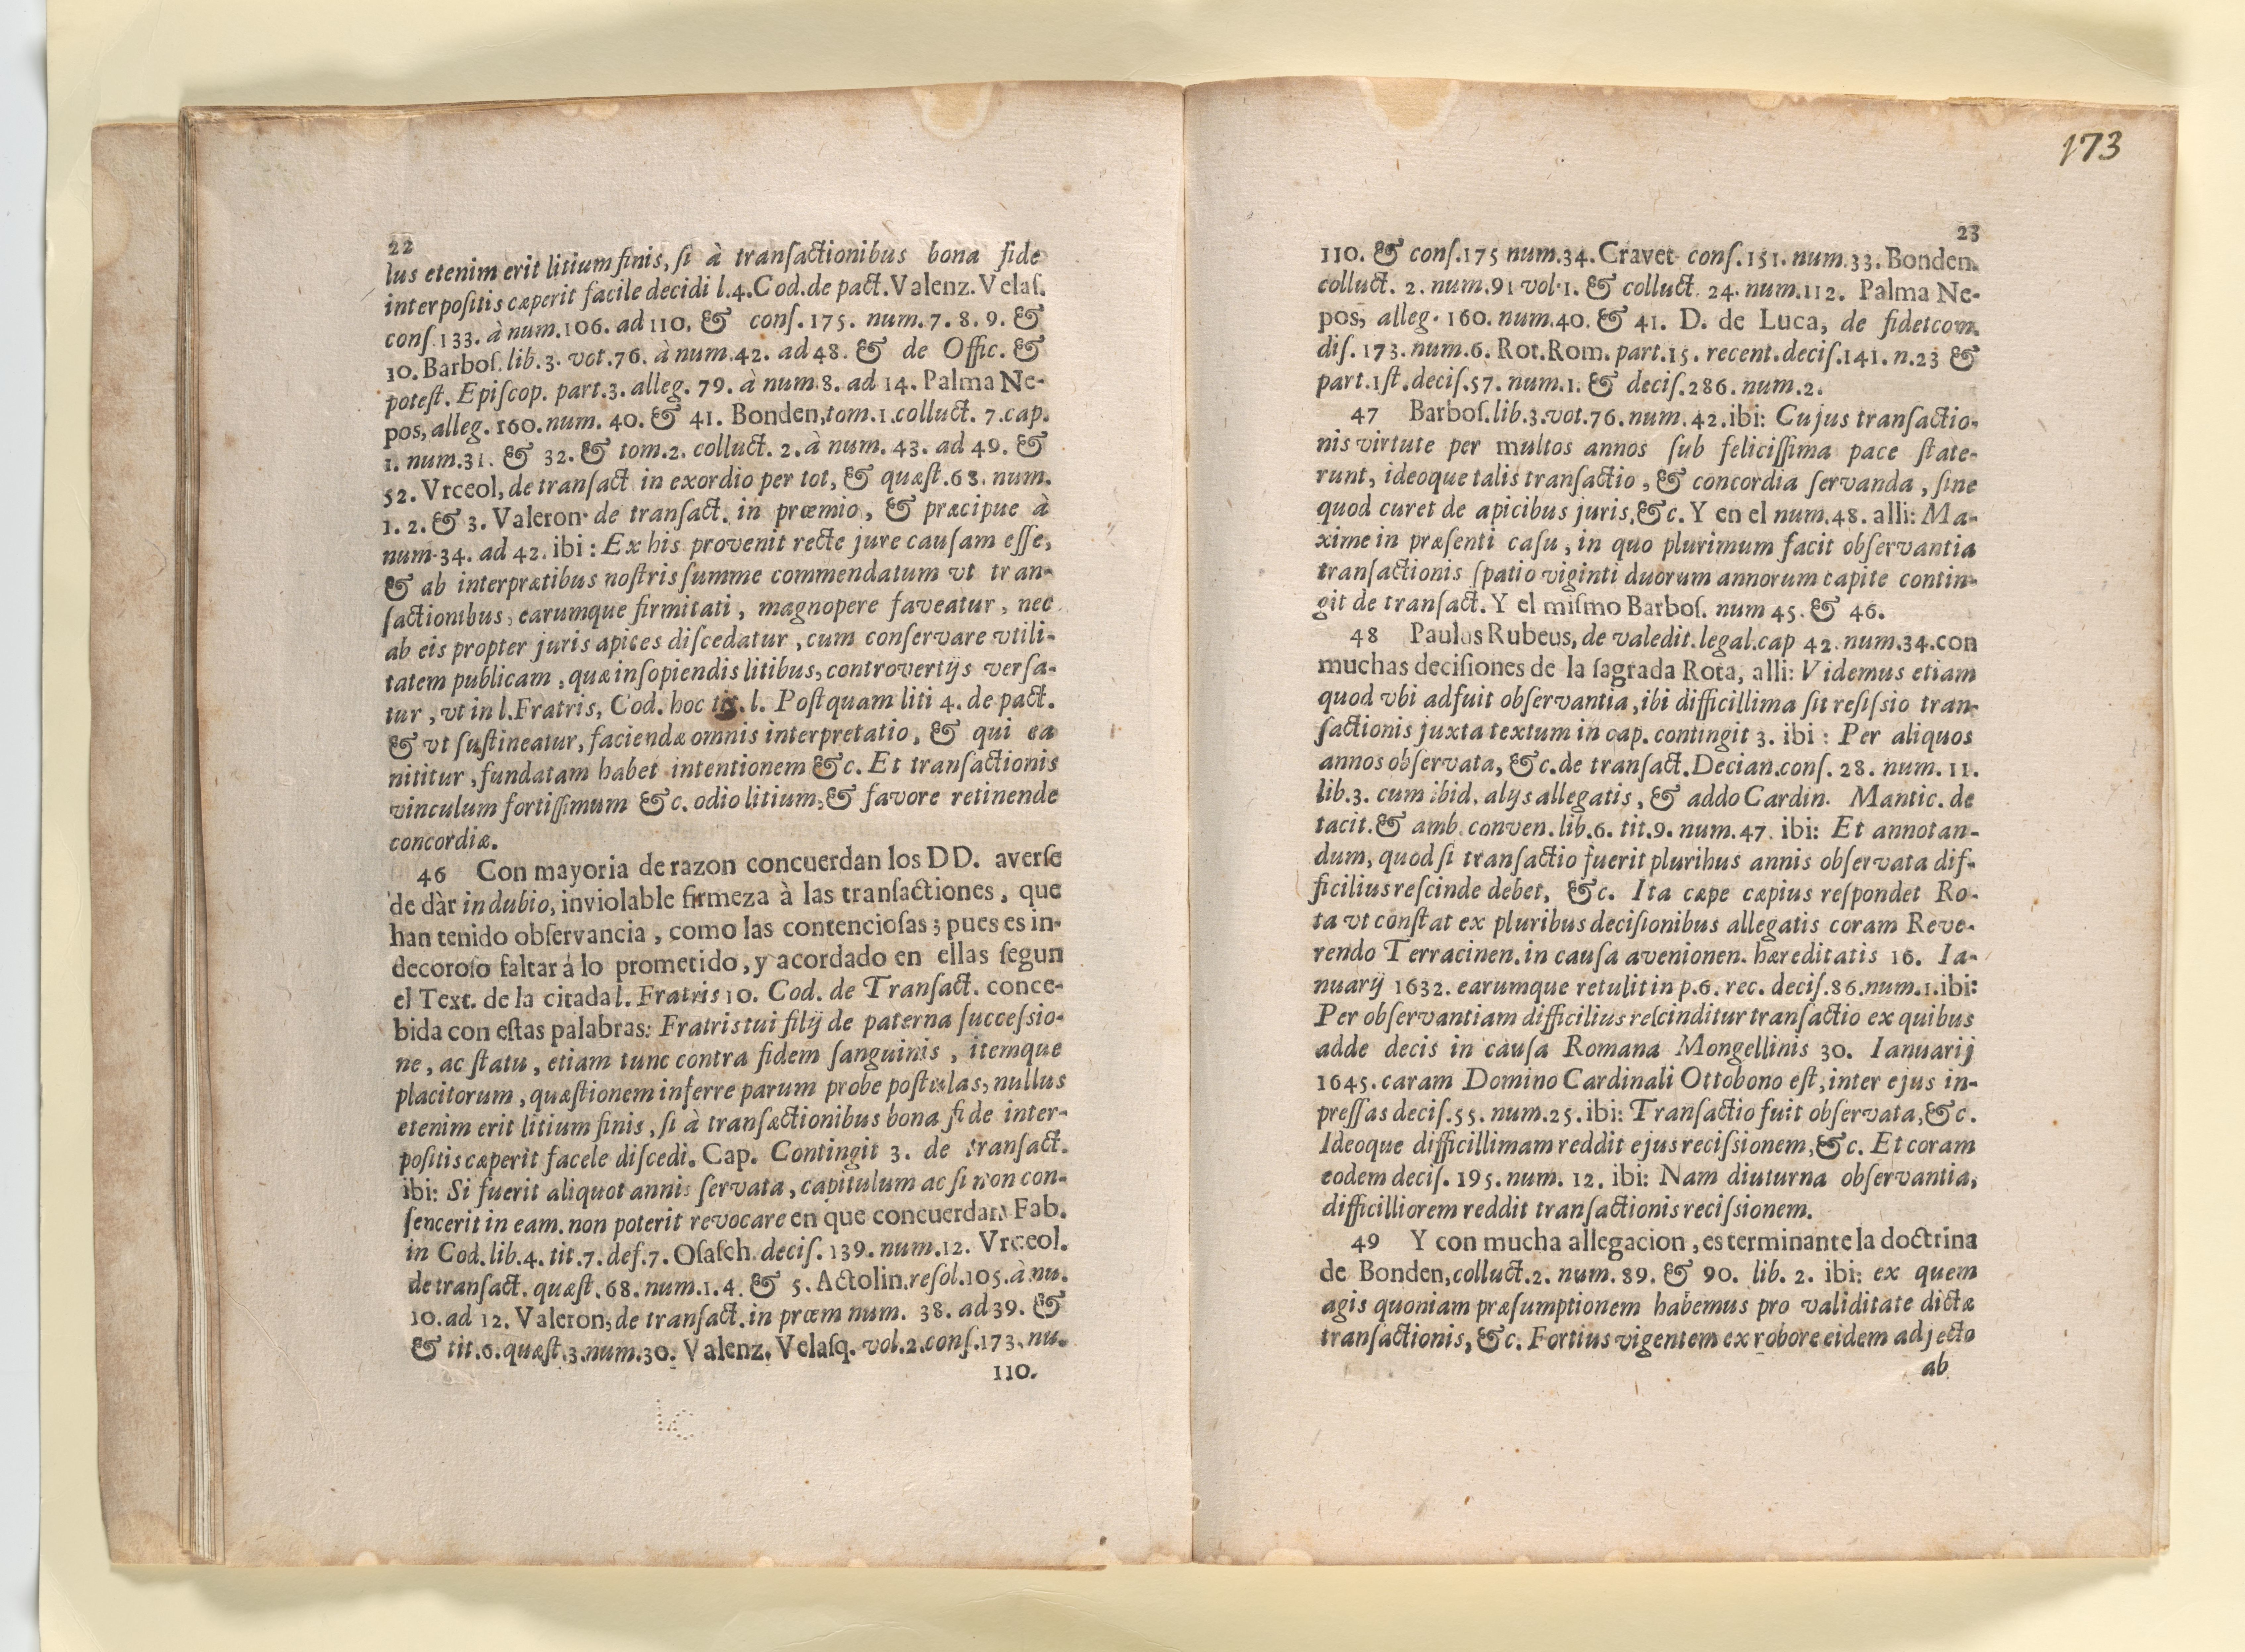 22
lus etenim erit litium finis, ſi à transſactionibus bona fide
interpoſitis cæperit facile decidi l.4.Cod.de pact.Valenz.Velaſ.
conſ.133. à num.106. ad 110. & conſ.175. num.7.8.9. &
10.Barboſ.lib.3. vot.76. à num.42. ad 48. & de Offic. &
poteſt. Epiſcop. part.3. alleg. 79. à num.8. ad 14. Palma Ne-
pos, alleg. 160. num. 40. & 41. Bonden, tom.1.colluct. 7.cap.
1. num.31. & 32. & tom.2. colluct. 2. à num. 43. ad 49. &
52. Vrceol, de tranſact. in exordio per tot, & quæſt.68. num.
1. 2. & 3. Valeron. de tranſact. in prœmio, & præcipue à
num.34. ad 42. ibi: Ex his provenit recte jure cauſam eſſe,
& ab interprætibus noſtris ſumme commendatum vt tran-
ſactionibus, earumque firmitati, magnopere faveatur, nec
ab eis propter juris apices diſcedatur, cum conſervare vtili-
tatem publicam, quæ inſopiendis litibus, controvertijs verſa-
tur, vt in l.Fratris, Cod. hoc tit. l. Poſtquam liti 4. de pact.
& vt ſuſtineatur, faciendæ omnis interpretatio, & qui ea
nititur, fundatam habet intentionem &c. Et tranſactionis
vinculum fortiſſimum &c. odio litium, & favore retinende
concordiæ.
46 Con mayoria de razon concuerdan los DD. averſe
de dàr in dubio, inviolable firmeza à las tranſactiones, que
han tenido obſervancia, como las contencioſas; pues es in-
decoroſo faltar á lo prometido, y acordado en ellas ſegun
el Text. de la citada l. Fratris 10. Cod. de Tranſact. conce-
bida con eſtas palabras: Fratris tui filij de paterna ſucceſsio-
ne, ac ſtatu, etiam tunc contra fidem ſanguinis, itemque
placitorum, quæſtionem inferre parum probe poſtulas, nullus
etenim erit litium finis, ſi à tranſæctionibus bona fide inter-
poſitis cæperit facele diſcedi. Cap. Contingit 3. de tranſact.
ibi: Si fuerit aliquot annis ſervata, capitulum ac ſi non con-
ſencerit in eam. non poterit revocare en que concuerdan Fab.
in Cod.lib.4. tit.7. def.7. Oſaſch. deciſ. 139. num.12. Vrceol.
de tranſact. quæſt. 68. num.1.4. & 5. Actolin.reſol.105. à nu.
10. ad 12. Valeron, de tranſact. in prœm num. 38. ad 39. &
& tit.6.quæſt.3.num.30. Valenz. Velaſq. vol.2.conſ.173.nu.
110.
173
23
110. & conſ.175 num.34. Cravet conſ.151. num.33. Bonden.
colluct. 2. num.91 vol.1. & colluct. 24. num.112. Palma Ne-
pos, alleg. 160. num.40. & 41. D. de Luca, de fideicom.
diſ. 173. num.6. Rot.Rom. part.15. recent.deciſ.141. n.23 &
part.1ſt.deciſ.57. num.1. & deciſ.286. num.2.
47 Barboſ.lib.3.vot.76.num.42.ibi: Cujus tranſactio-
nis virtute per multos annos ſub feliciſſima pace ſtate-
runt, ideoque talis tranſactio, & concordia ſervanda, ſine
quod curet de apicibus juris,&c. Y en el num.48. alli: Ma-
xime in præſenti caſu, in quo plurimum facit obſervantia
tranſactionis ſpatio viginti duorum annorum capite contin-
git de tranſact. Y el miſmo Barboſ. num 45. & 46.
48 Paulus Rubeus, de valedit.legal.cap 42. num.34.con
muchas deciſiones de la ſagrada Rota, alli: Videmus etiam
quod vbi adfuit obſervantia, ibi difficillima ſit reſiſsio tran-
ſactionis juxta textum in cap. contingit 3. ibi: Per aliquos
annos obſervata, &c.de tranſact.Decian.conſ. 28. num. 11.
lib.3. cum ibid. alijs allegatis, & addo Cardin. Mantic. de
tacit.& amb. conven. lib.6. tit.9. num.47. ibi: Et annotan-
dum, quod ſi tranſactio fuerit pluribus annis obſervata dif-
ficilius reſcinde debet, &c. Ita cæpe cæpius reſpondet Ro-
ta vt conſtat ex pluribus deciſionibus allegatis coram Reve-
rendo Terracinen.in cauſa avenionen. hæreditatis 16. Ia-
nuarij 1632. earumque retulit in p.6. rec. deciſ.86.num.1.ibi:
Per obſervantiam difficilius reſcinditur tranſactio ex quibus
adde decis in cauſa Romana Mongellinis 30. Ianuarij
1645. caram Domino Cardinali Ottobono eſt, inter ejus in-
preſſas deciſ.55. num.25. ibi: Tranſactio fuit obſervata, &c.
Ideoque difficillimam reddit ejus reciſsionem, &c. Et coram
eodem deciſ. 195. num. 12. ibi: Nam diuturna obſervantia,
difficilliorem reddit tranſactionis reciſsionem.
49 Y con mucha allegacion, es terminante la doctrina
de Bonden, colluct.2. num. 89. & 90. lib. 2. ibi: ex quem
agis quoniam præſumptionem habemus pro validitate dictæ
tranſactionis, &c. Fortius vigentem ex robore eidem adjecto
ab